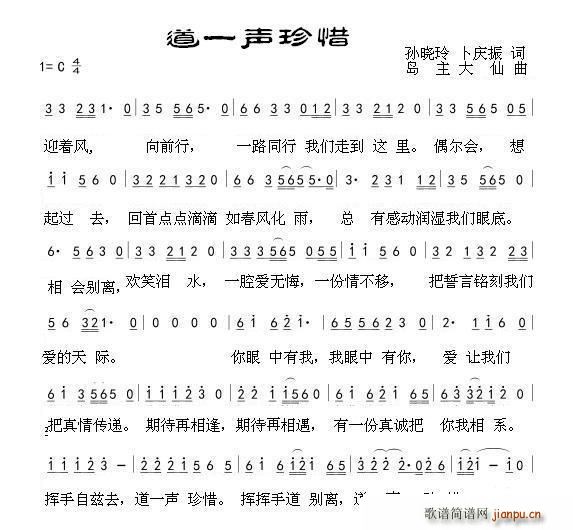 道一声珍惜
孙晓玲 卜庆振 词
1=C 4/4
岛 主 大 仙 曲
3 3 2 3 1· 0 | 3 5 5 6 5· 0 | 6 6 3 3 0 1 2 | 3 3 2 1 2 0 | 3 3 5 6 5 0 |
迎着风, 向前行， 一路同行 我们走到 这 里。偶尔会， 想
i i 5 6 0 | 3 2 2 1 3 2 0 | 3 2 3 5 6 5 5· 0 | 3· 2 1 2 1 2 | 3 5 5 6 5 0 |
起过 去， 回首点点滴滴 如春风化 雨， 总 有感动润湿我们眼底。
6· 5 6 3 0 | 3 3 2 1 2 0 | 3 3 3 5 6 5 0 5 5 | i i 5 6 0 | 3 2 1 3 2 2 3 |
相 会别离, 欢笑泪 水， 一腔爱无悔，一份情不移， 把誓言铭刻我们
5 6 3 2 1· | 0 0 0 0 | 6 i 6 2 i· | 6 5 5 6 5 3 0 | 2· i i 6 0 |
爱的天 际。 你眼 中有我，我眼中 有你， 爱 让我们
6 i 3 5 6 5 0 | i i i i 2 3 0 | 2 2 2 i i 5 6 0 | 6 i 5 6 i 5 | 6 i 2 3 0 |
把真情传递。 期待再相逢，期待再相遇， 有一份真诚把 你我相 系。
挥手自兹去，道一声 珍惜。 挥挥手道 别离，
歌谱简谱网 jianpu.cn